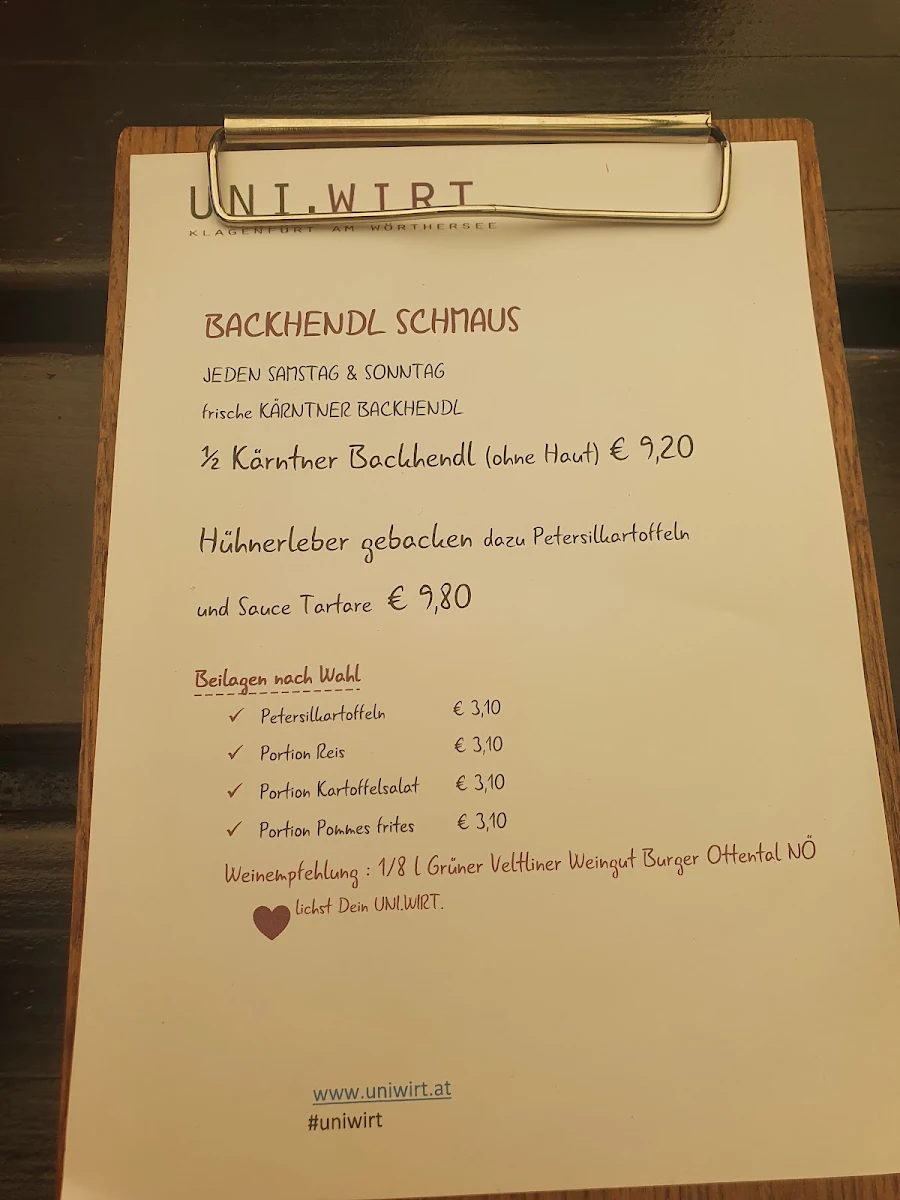 UNI.WIRT
KLAGENFURT AM WÖRTHERSEE
BACKHENDL SCHMAUS
JEDEN SAMSTAG & SONNTAG
frische KÄRNTNER BACKHENDL
½ Kärntner Backhendl (ohne Haut) € 9,20
Hühnerleber gebacken dazu Petersilkartoffeln
und Sauce Tartare € 9,80
Beilagen nach Wahl
✓ Petersilkartoffeln € 3,10
✓ Portion Reis € 3,10
✓ Portion Kartoffelsalat € 3,10
✓ Portion Pommes frites € 3,10
Weinempfehlung : 1/8 l Grüner Veltliner Weingut Burger Ottental NÖ
♥lichst Dein UNI.WIRT.
www.uniwirt.at
#uniwirt